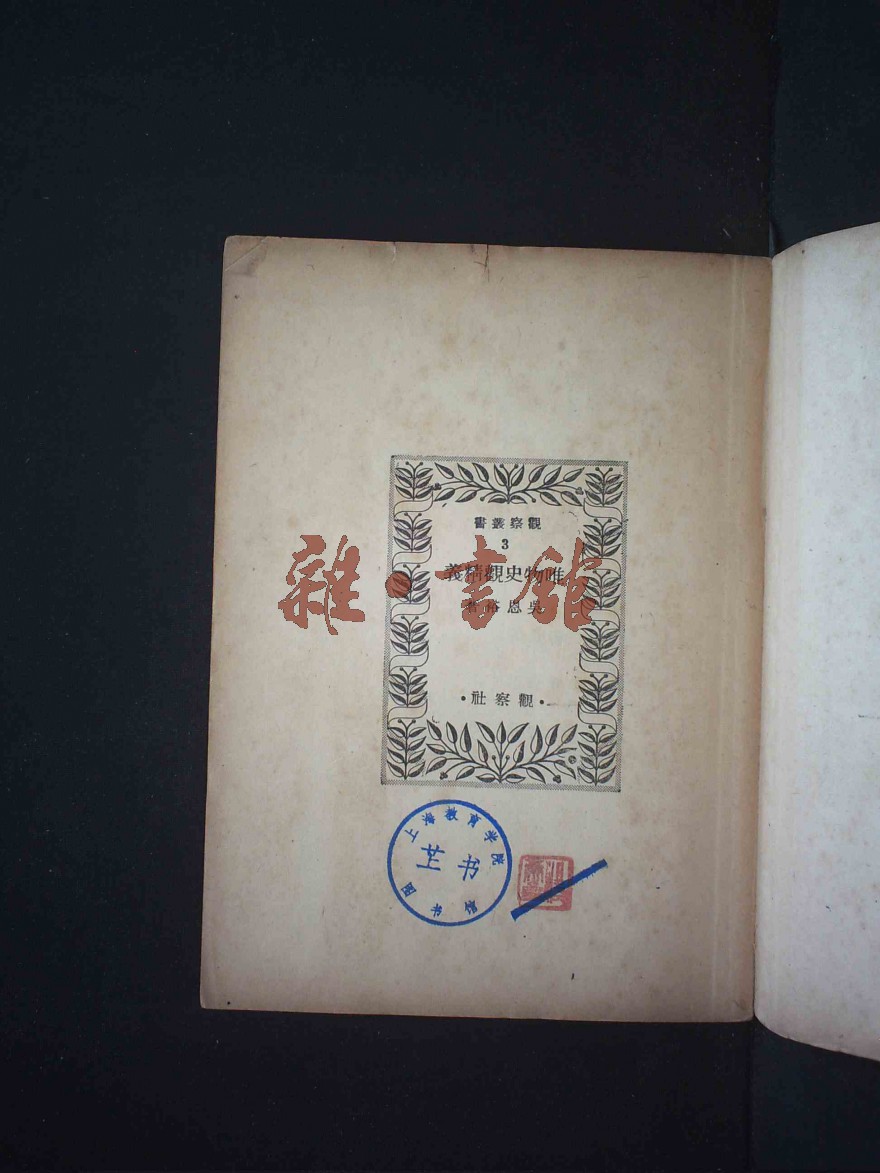 觀察叢書
3
唯物史觀精義
吳恩裕著
•觀察社•
雜·書館
上海教育学院
图书馆
书